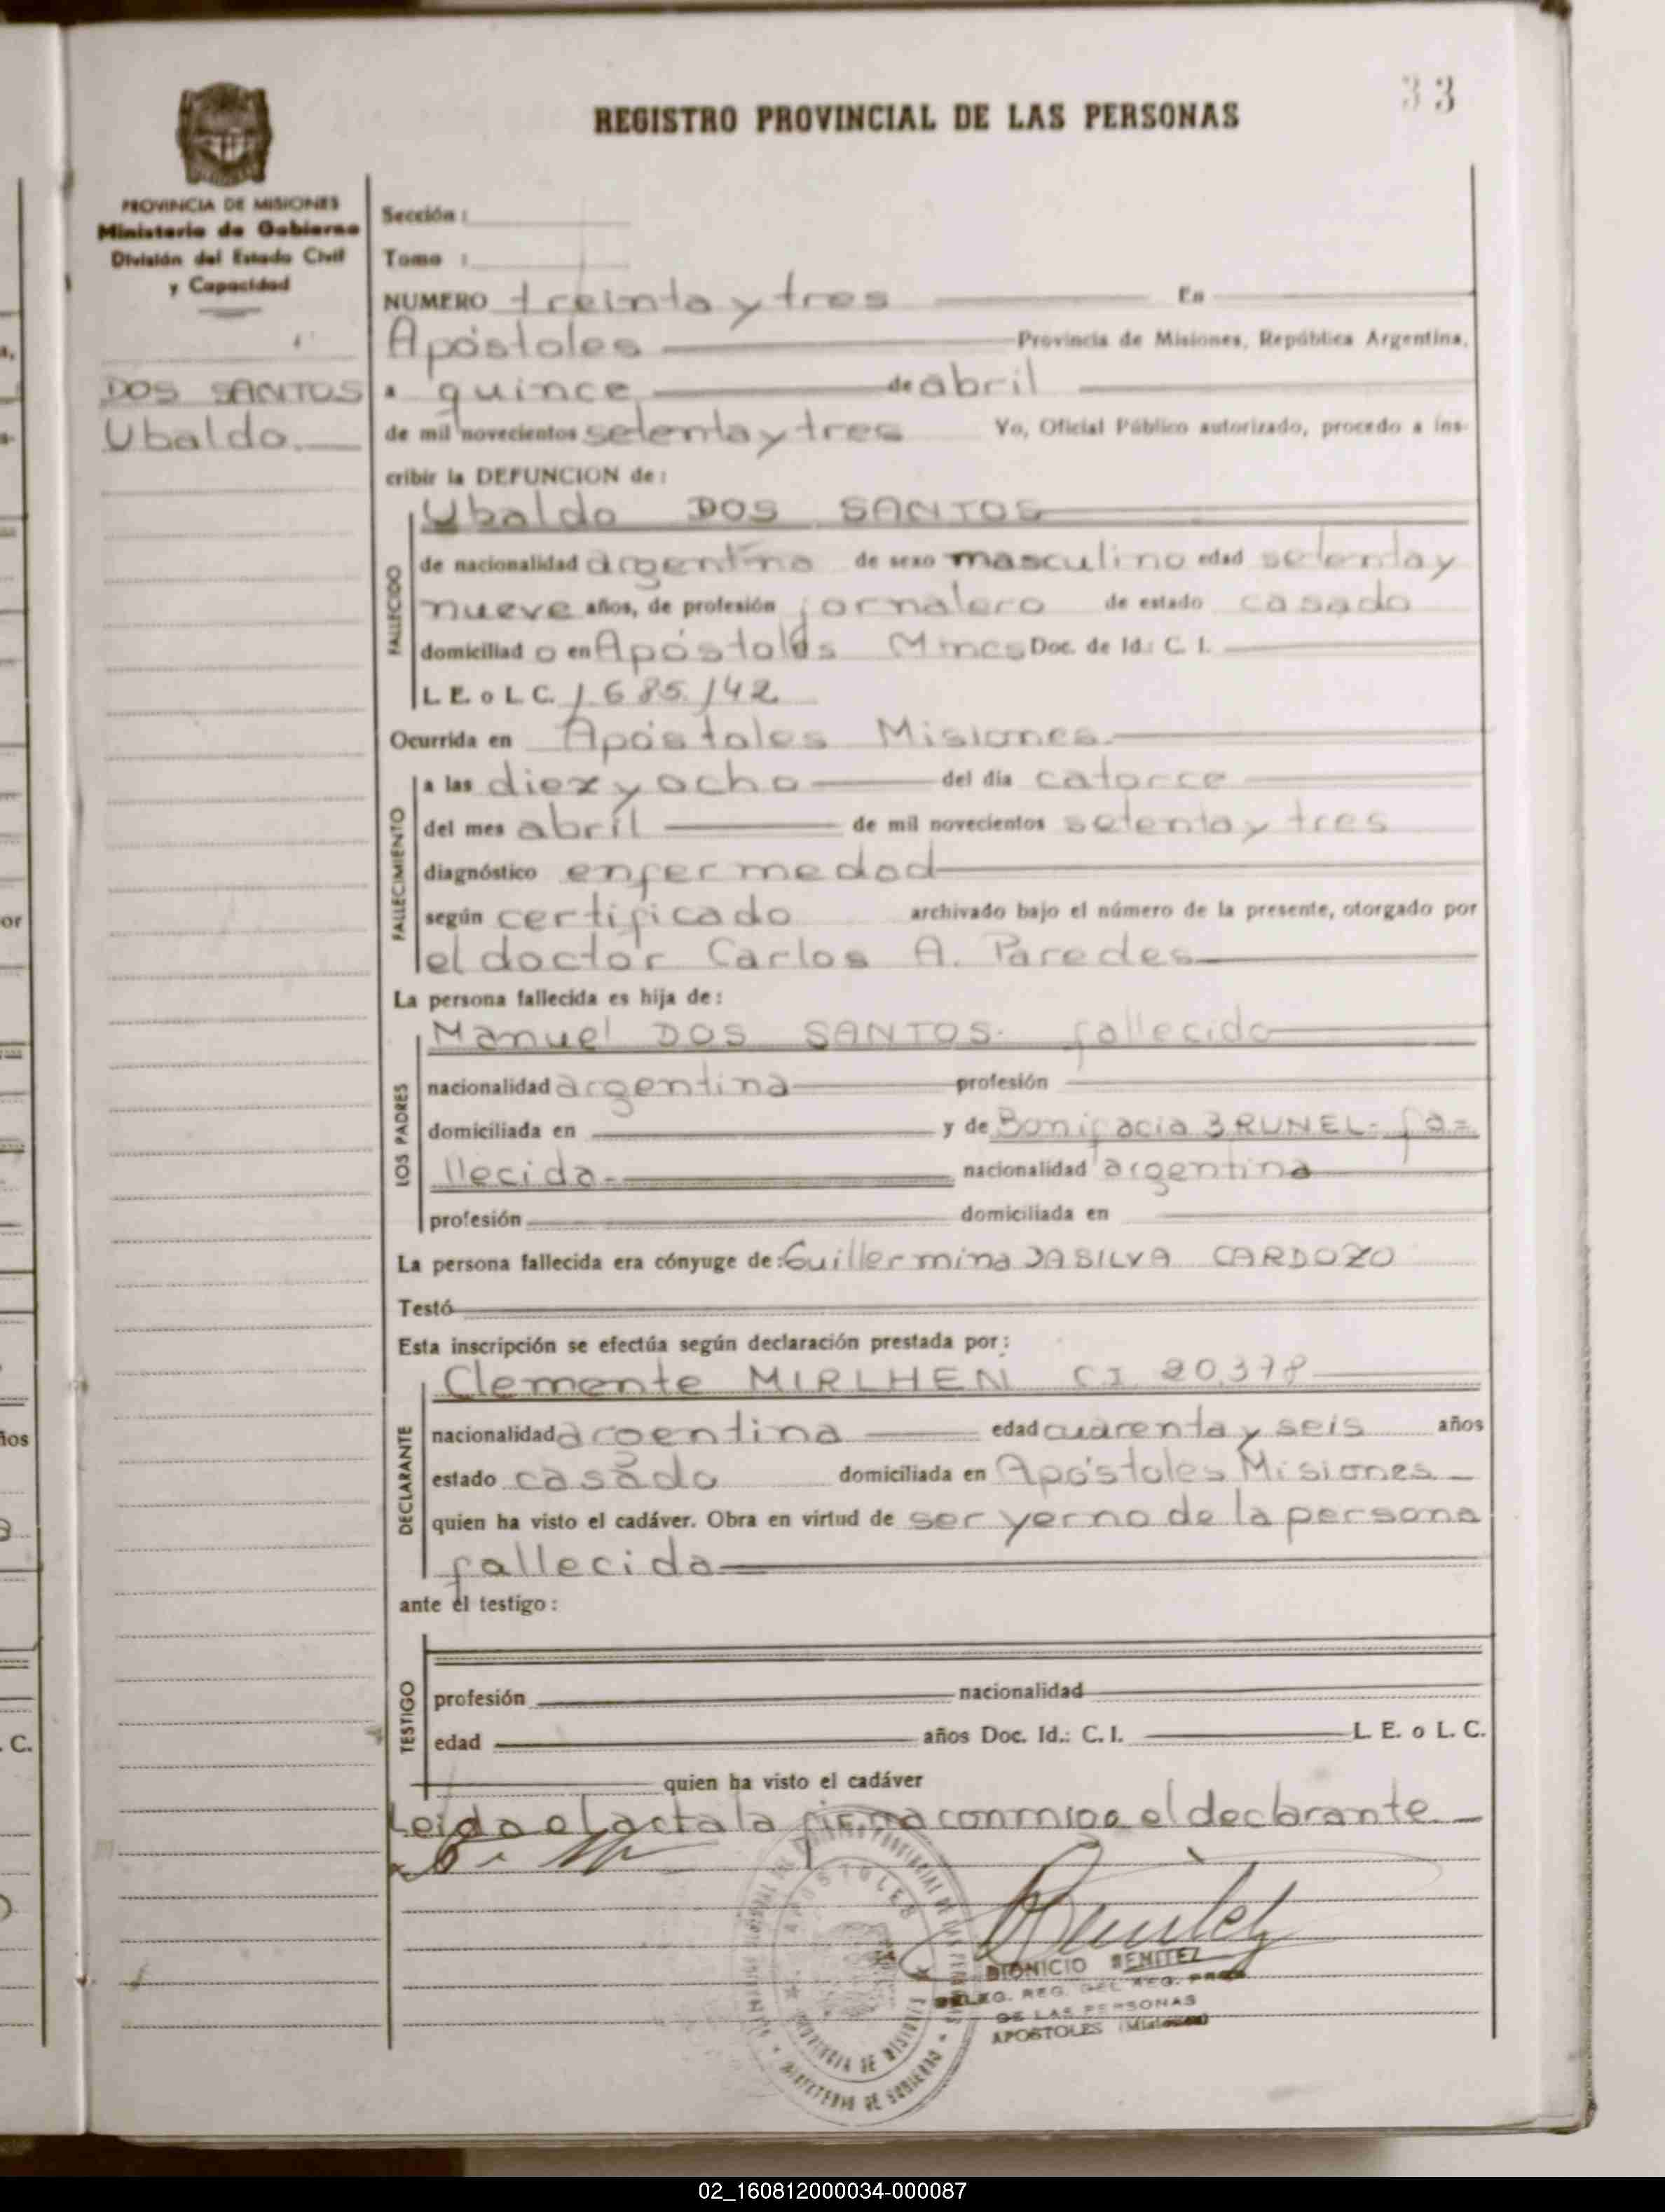 33
REGISTRO PROVINCIAL DE LAS PERSONAS
PROVINCIA DE MISIONES
Ministerio de Gobierno
División del Estado Civil
y Capacidad
DOS SANTOS
Ubaldo.
Sección:
Tomo :
NUMERO treinta y tres En
Apóstoles Provincia de Misiones, República Argentina,
a quince de abril
de mil novecientos setenta y tres Yo, Oficial Público autorizado, procedo a ins-
cribir la DEFUNCION de:
FALLECIDO
Ubaldo DOS SANTOS
de nacionalidad argentina de sexo masculino edad setenta y
nueve años, de profesión jornalero de estado casado
domiciliad o en Apóstoles Mnes Doc. de Id.: C. I.
L E. o L C. 1.685.142
Ocurrida en Apóstoles Misiones.
FALLECIMIENTO
a las diez y ocho del día catorce
del mes abril de mil novecientos setenta y tres
diagnóstico enfermedad
según certificado archivado bajo el número de la presente, otorgado por
el doctor Carlos A. Paredes
La persona fallecida es hija de:
LOS PADRES
Manuel DOS SANTOS. fallecido
nacionalidad argentina profesión
domiciliada en y de Bonifacia BRUNEL- fa=
llecida. nacionalidad argentina
profesión domiciliada en
La persona fallecida era cónyuge de: Guillermina DASILVA CARDOZO
Testó
Esta inscripción se efectúa según declaración prestada por:
DECLARANTE
Clemente MIRLHEN CI 20.378
nacionalidad argentina edad cuarenta y seis años
estado casado domiciliada en Apóstoles Misiones
quien ha visto el cadáver. Obra en virtud de ser yerno de la persona
fallecida
ante el testigo:
TESTIGO
profesión nacionalidad
edad años Doc. Id.: C. I. L. E. o L. C.
quien ha visto el cadáver
Leida el acta la firma conmigo el declarante
APOSTOLES
PROVINCIA DE MISIONES
MINISTERIO DE GOBIERNO
DIONICIO BENITEZ
DELEG. REG. DEL REG. PROV.
DE LAS PERSONAS
APOSTOLES (Misiones)
02_160812000034-000087